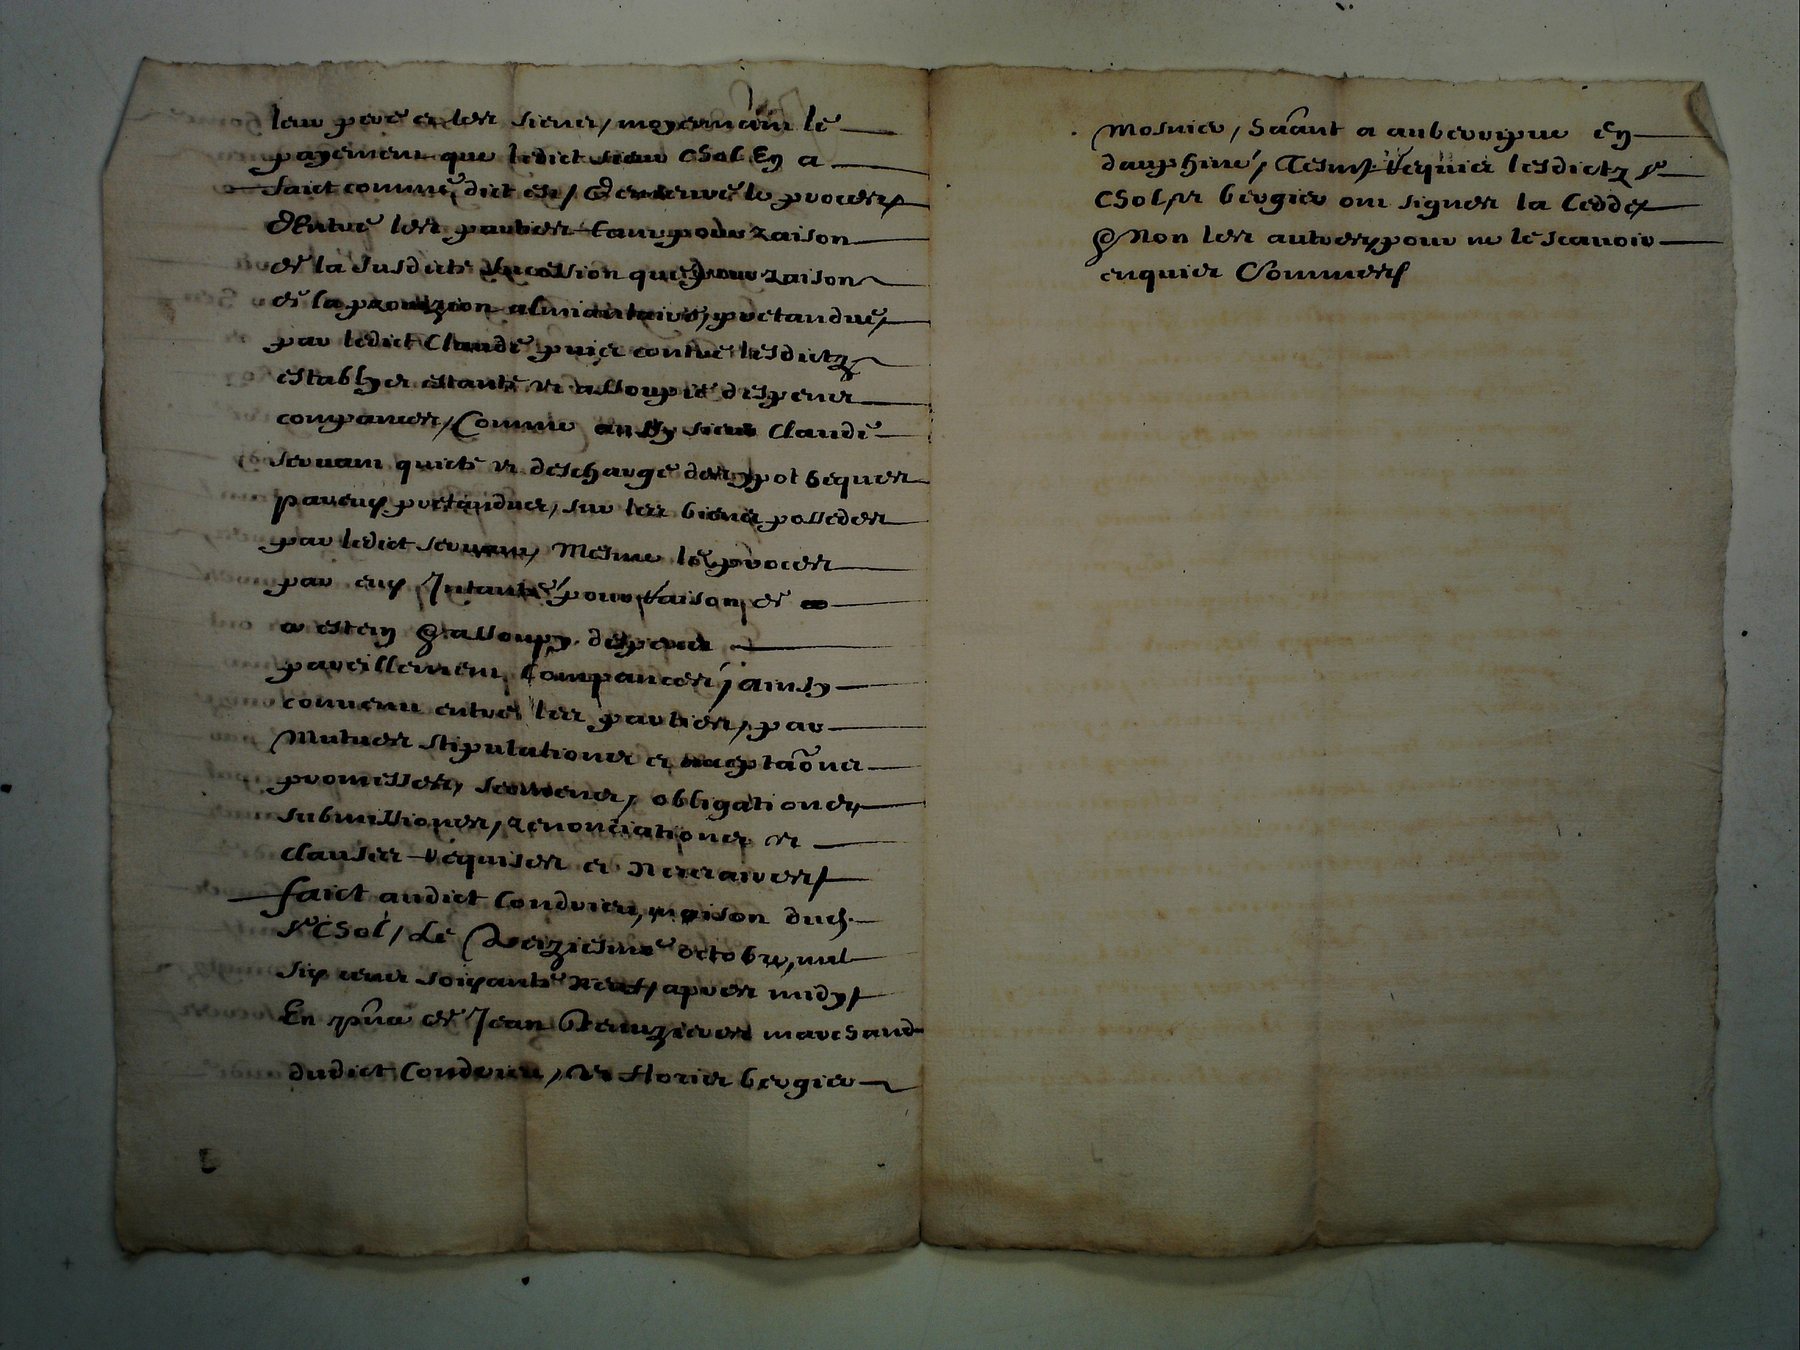 leur pere et les siens, moyennant le
payement que ledict sieur Chol en a
faict comme dict est, et demeure le proces
dentre les parties tant pour raison
de la susdicte succession que pour raison
de la provizion alimantaire, pretandue,
par ledict Claude contre lesdictz
establys estantz et assoupis despens
compances, Comme aussy sieur Claude
servant quicte et descharge des ypotheques
par eux pretandues, sur les biens possedes
par ledict servant, Mesme le proces
par eux Intanté pour raison de ce
estein et assoupy despens
pareillement Compances, ainsy
convenu entre les parties, par
Mutues stipulations et acceptaõns
promesses, sermens, obligations
submissions, renonciations et
clauses requises et necessaires
faict audict Condrieu, maison dud.
sr Chol, Le treziesme octobre, mil
six cens soixante neuf, apres midy
En pñce de Jean marchand
dudict Condrieu, et bergier
Mosnier, hãant a auberripue en
dauphiné, Tesm requis lesdictz sr
Chol, et bergier ont signes la cedde
et Non les autres, pour ne le scavoir
enquis Sommes